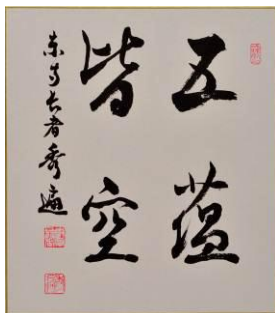 五蘊
皆空
東寺長者秀遍